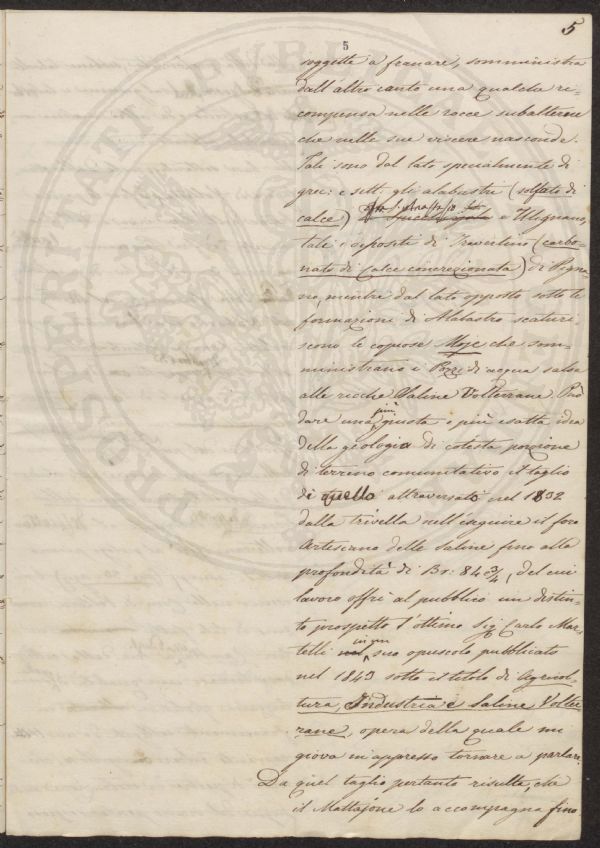 5
5
soggette a franare, somministra
dall'altro canto una qualche ri-
compensa nelle rocce subalterne
che nelle sue viscere nasconde.
Tali sono dal lato specialmente di
grec: e sett: gli alabastri (solfato di
calce) e Ulignano,
tali i depositi di Travertino (carbo-
nato di calce concrezionata) di Pigna-
no, mentre dal lato opposto sotto le
formazione di Alabastro scaturi-
scono le copiose Moje che som-
ministrano i Pozzi di acqua salsa
alle ricche Saline Volterrane. Può
dare una più giusta e più esatta idea
della geologia di cotesta porzione
di terreno comunitativo il taglio
di quello attraversato nel 1832
dalla trivella nell'eseguire il foro
Artesiano delle Saline fino alla
profondità di Br: 84 3/4, del cui
lavoro offrì al pubblico un distin-
to prospetto l'ottimo Sig. Carlo Mar-
telli in un suo opuscolo pubblicato
nel 1843 sotto il titolo di Agricol-
tura, Industria e Saline Volter-
rane, opera della quale mi
giova in appresso tornare a parlare.
Da quel taglio pertanto risulta, che
il Mattajone lo accompagna fino
PROSPERITATI PVBLICAE